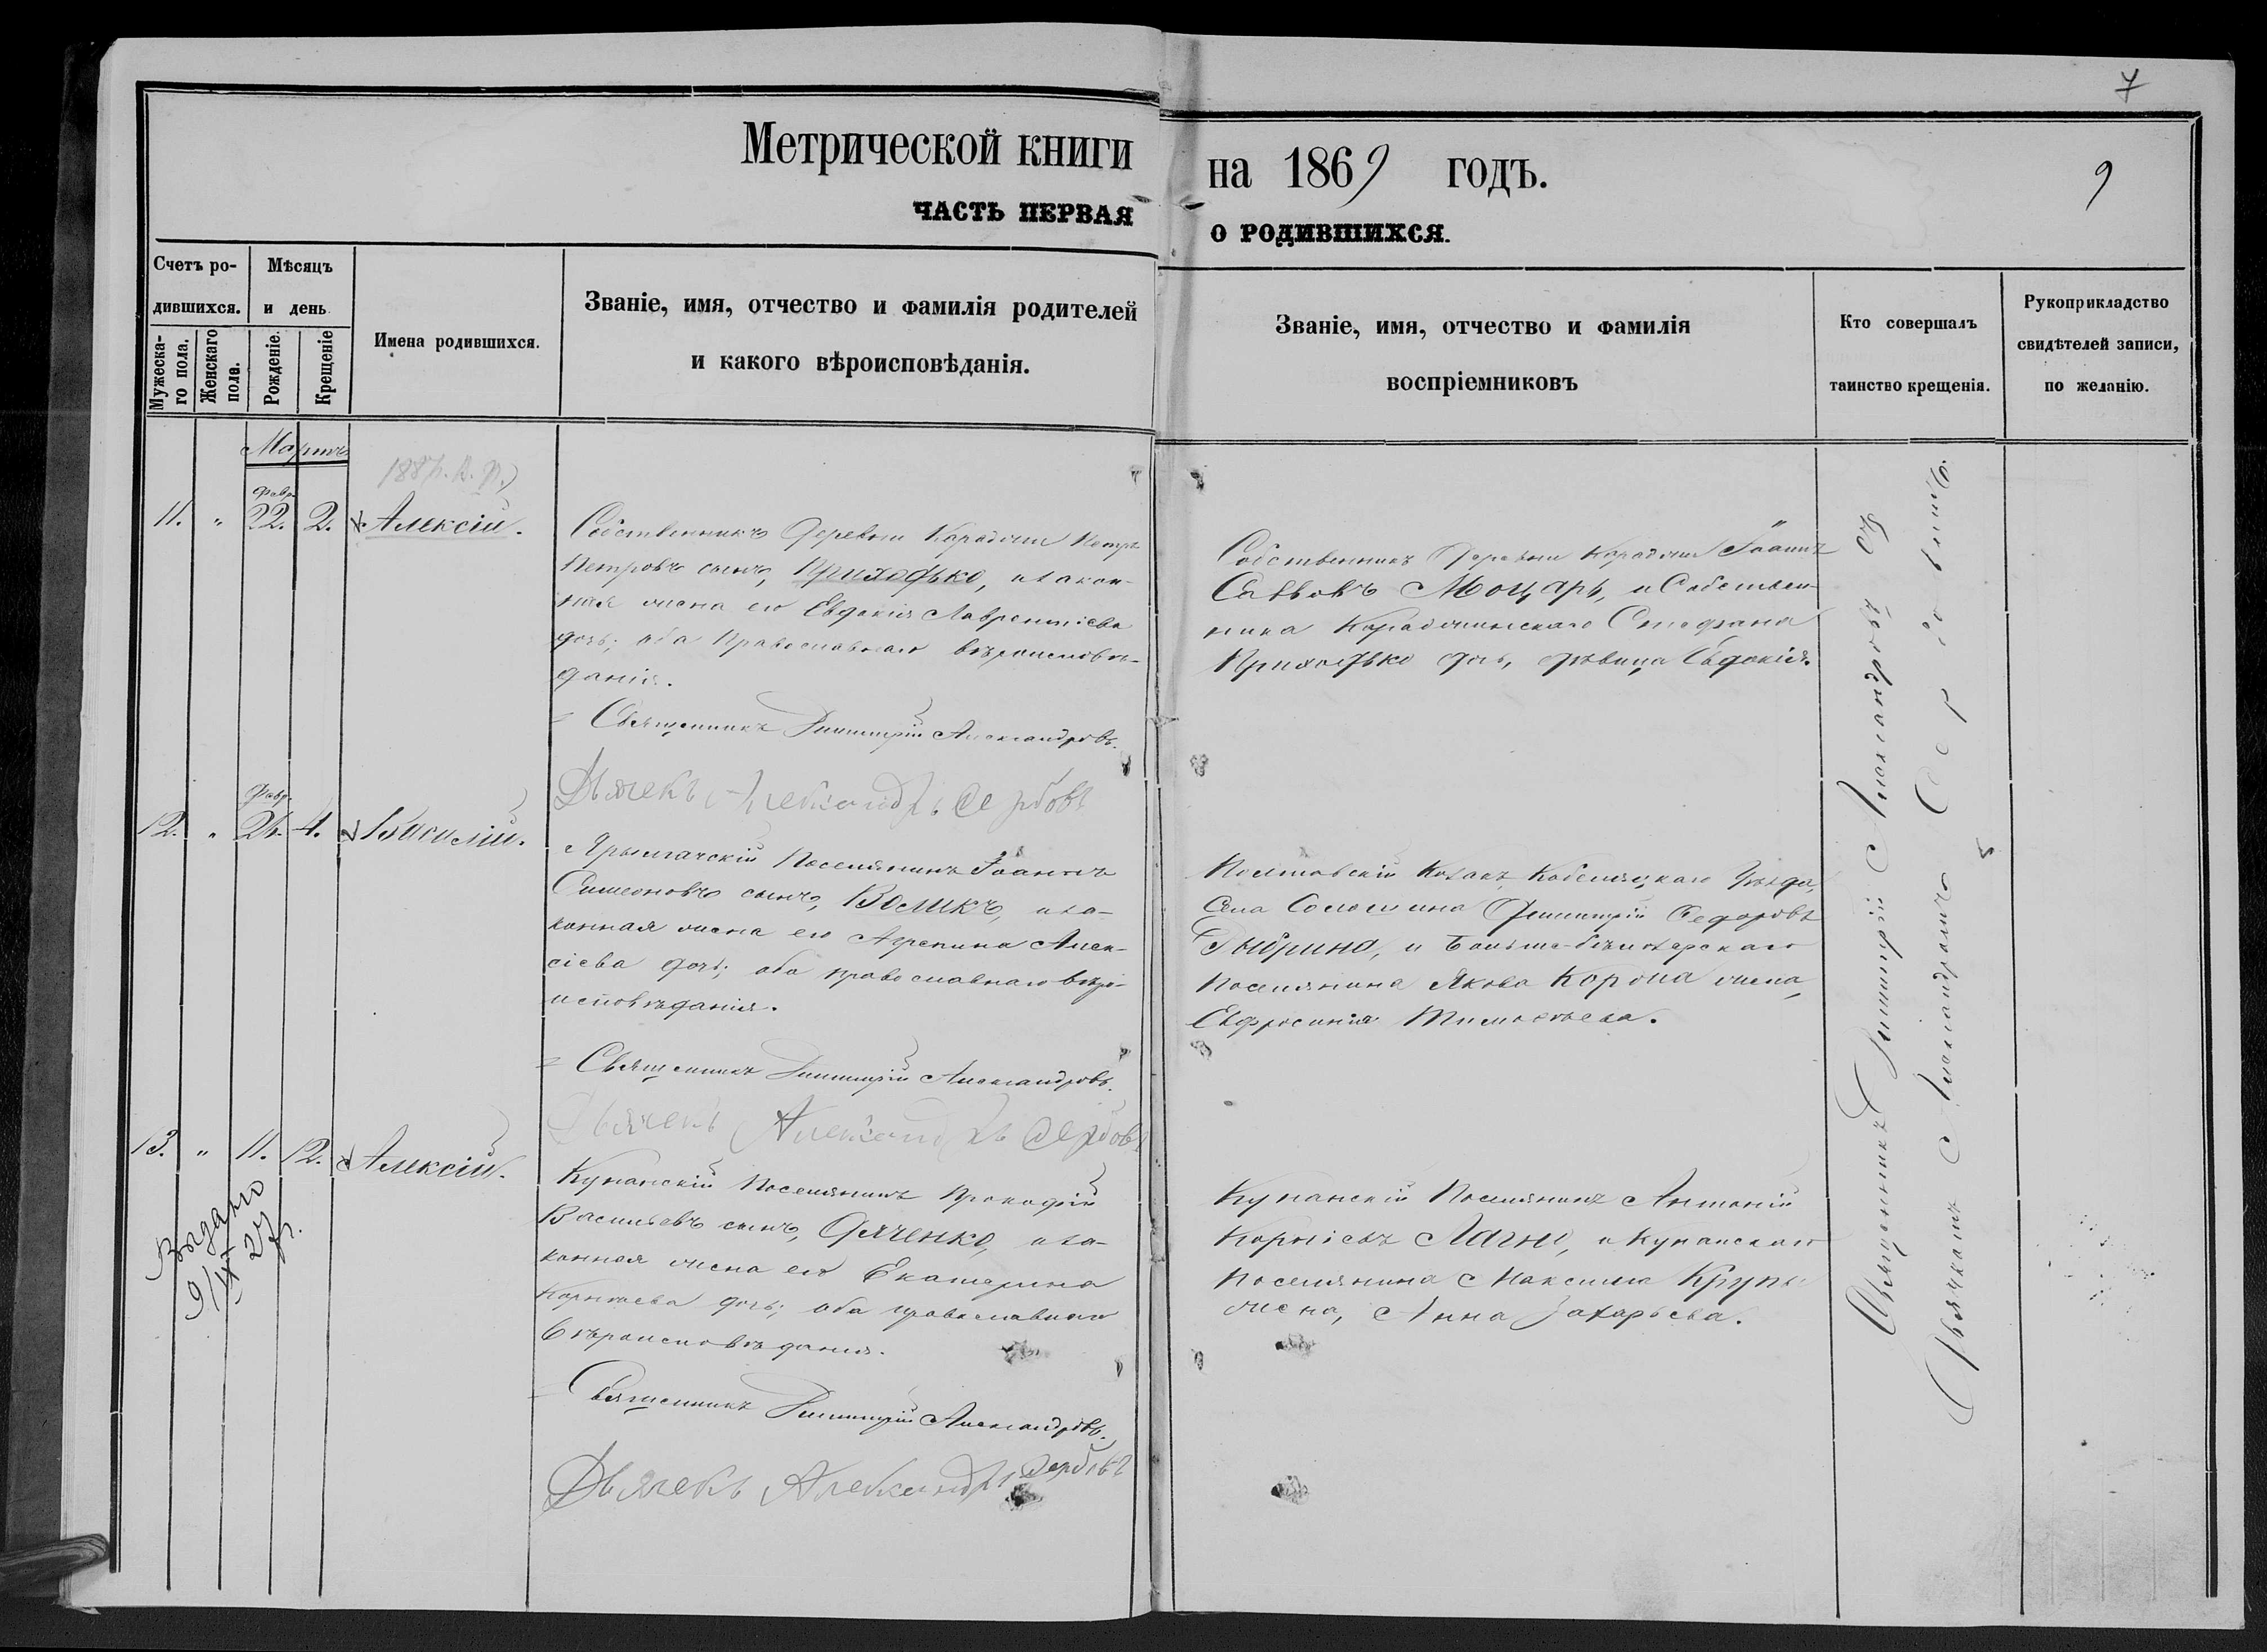 7
Метрической книги на 1869 годъ.
9
ЧАСТЬ ПЕРВАЯ О РОДИВШИХСЯ.
Счетъ ро-
дившихся.
Мужеска-
го пола.
Женскаго
пола.
Мѣсяцъ
и день
Рожденіе.
Крещеніе
Имена родившихся.
Званіе, имя, отчество и фамилія родителей
и какого вѣроисповѣданія.
Званіе, имя, отчество и фамилія
воспріемниковъ
Кто совершалъ
таинство крещенія.
Рукоприкладство
свидѣтелей записи,
по желанію.
Мартъ
февр.
11. " 22. 2. Алексій.
Собственникъ Деревни Петръ
Петровъ сынъ, Приходько, и закон-
ная жена его Евдокія Лаврентіева
дочь; оба Православнаго вѣроисповѣ-
данія.
Священникъ Димитрій Александровъ.
Дьячекъ Александръ Сербовъ
Собственникъ Деревни Іоаннъ
Савовъ Моцарь, и Собствен-
ника Стефана
Приходько дочь, дѣвица Евдокія.
февр.
12. " 26. 4. Василій.
Поселянинъ Іоаннъ
Симеоновъ сынъ, Воликъ, и за-
конная жена его Агрепина Алек-
сіева дочь; оба православнаго вѣро-
исповѣданія.
Священникъ Димитрій Александровъ.
Дьячекъ Александръ Сербовъ
Полтавскій Козакъ Кобеляцкаго Уѣзда,
Села Солошина Димитрій Федоровъ
и Больше-Бѣлозерскаго
Поселянина Якова жена,
Евфросинія Тимофѣева.
13. " 11. 12. Алексій.
Выдано
9/IX 27 г.
Кунанскій Поселянинъ Прокофій
Васильевъ сынъ, Дяченко, и за-
конная жена его Екатерина
Корніева дочь; оба православнаго
вѣроисповѣданія.
Священникъ Димитрій Александровъ.
Дьячекъ Александръ Сербовъ
Кунанскій Поселянинъ Антоній
Корніевъ и Кунанскаго
поселянина Максима
жена, Анна Захарьева.
Священникъ Димитрій Александровъ съ
Дьячкомъ Александромъ Сербовымъ.